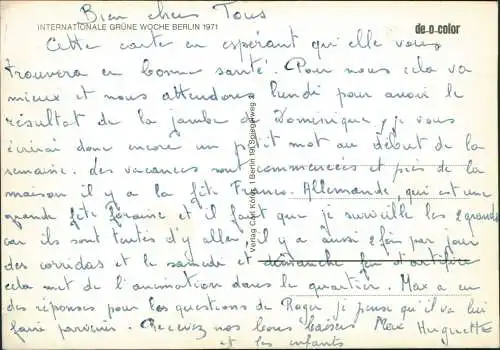 Bien chers Tous
INTERNATIONALE GRÜNE WOCHE BERLIN 1971
de-o-color
Cette carte en espérant qu'elle vous
trouvera en bonne santé. Pour nous cela va
mieux et nous attendons lundi pour avoir le
résultat de la jambe de Dominique, je vous
écrirai donc encore un petit mot au début de la
semaine. des vacances sont commencées et près de la
maison il y a la fête Franco. Allemande, qui est une
grande fête foraine et il faut que je surveille les 2 grands
car ils sont tentés d'y aller. il y a aussi 2 fois par jour
des corridas et le samedi et dimanche feu d'artifice
cela met de l'animation dans le quartier. Max a eu
des réponses pour les questions de Roger je pense qu'il va lui
faire parvenir. Recevez nos bons baisers Max Huguette
et les enfants
Verlag Carl Köfer, 1 Berlin 19, Spiegelweg